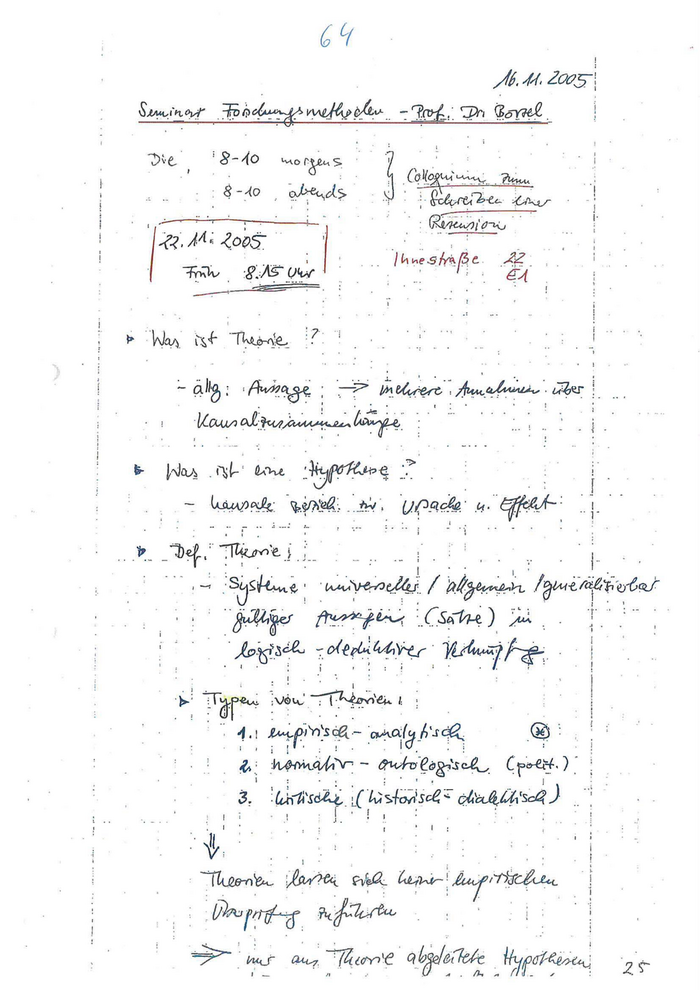 64
16.11.2005
Seminar Forschungsmethoden - Prof. Dr. Börzel
Die, 8-10 morgens
8-10 abends
Colloquium zum
Schreiben einer
Rezension
22.11.2005
Früh 8.15 Uhr
Ihnestraße 22
E1
Was ist Theorie?
- allg. Aussage → mehrere Annahmen über
Kausalzusammenhänge
Was ist eine Hypothese?
- kausale Bezieh. zw. Ursache u. Effekt
Def. Theorie:
- Systeme universeller / allgemein / generalisierbar
gültiger Aussagen (Sätze) in
logisch-deduktiver Verknüpfg
Typen von Theorien:
1. empirisch-analytisch
2. normativ-ontologisch (polit.)
3. kritische (historisch-dialektisch)
⇓
Theorien lassen sich keiner empirischen
Überprüfg zuführen
⇒ nur aus Theorie abgeleitete Hypothesen
25